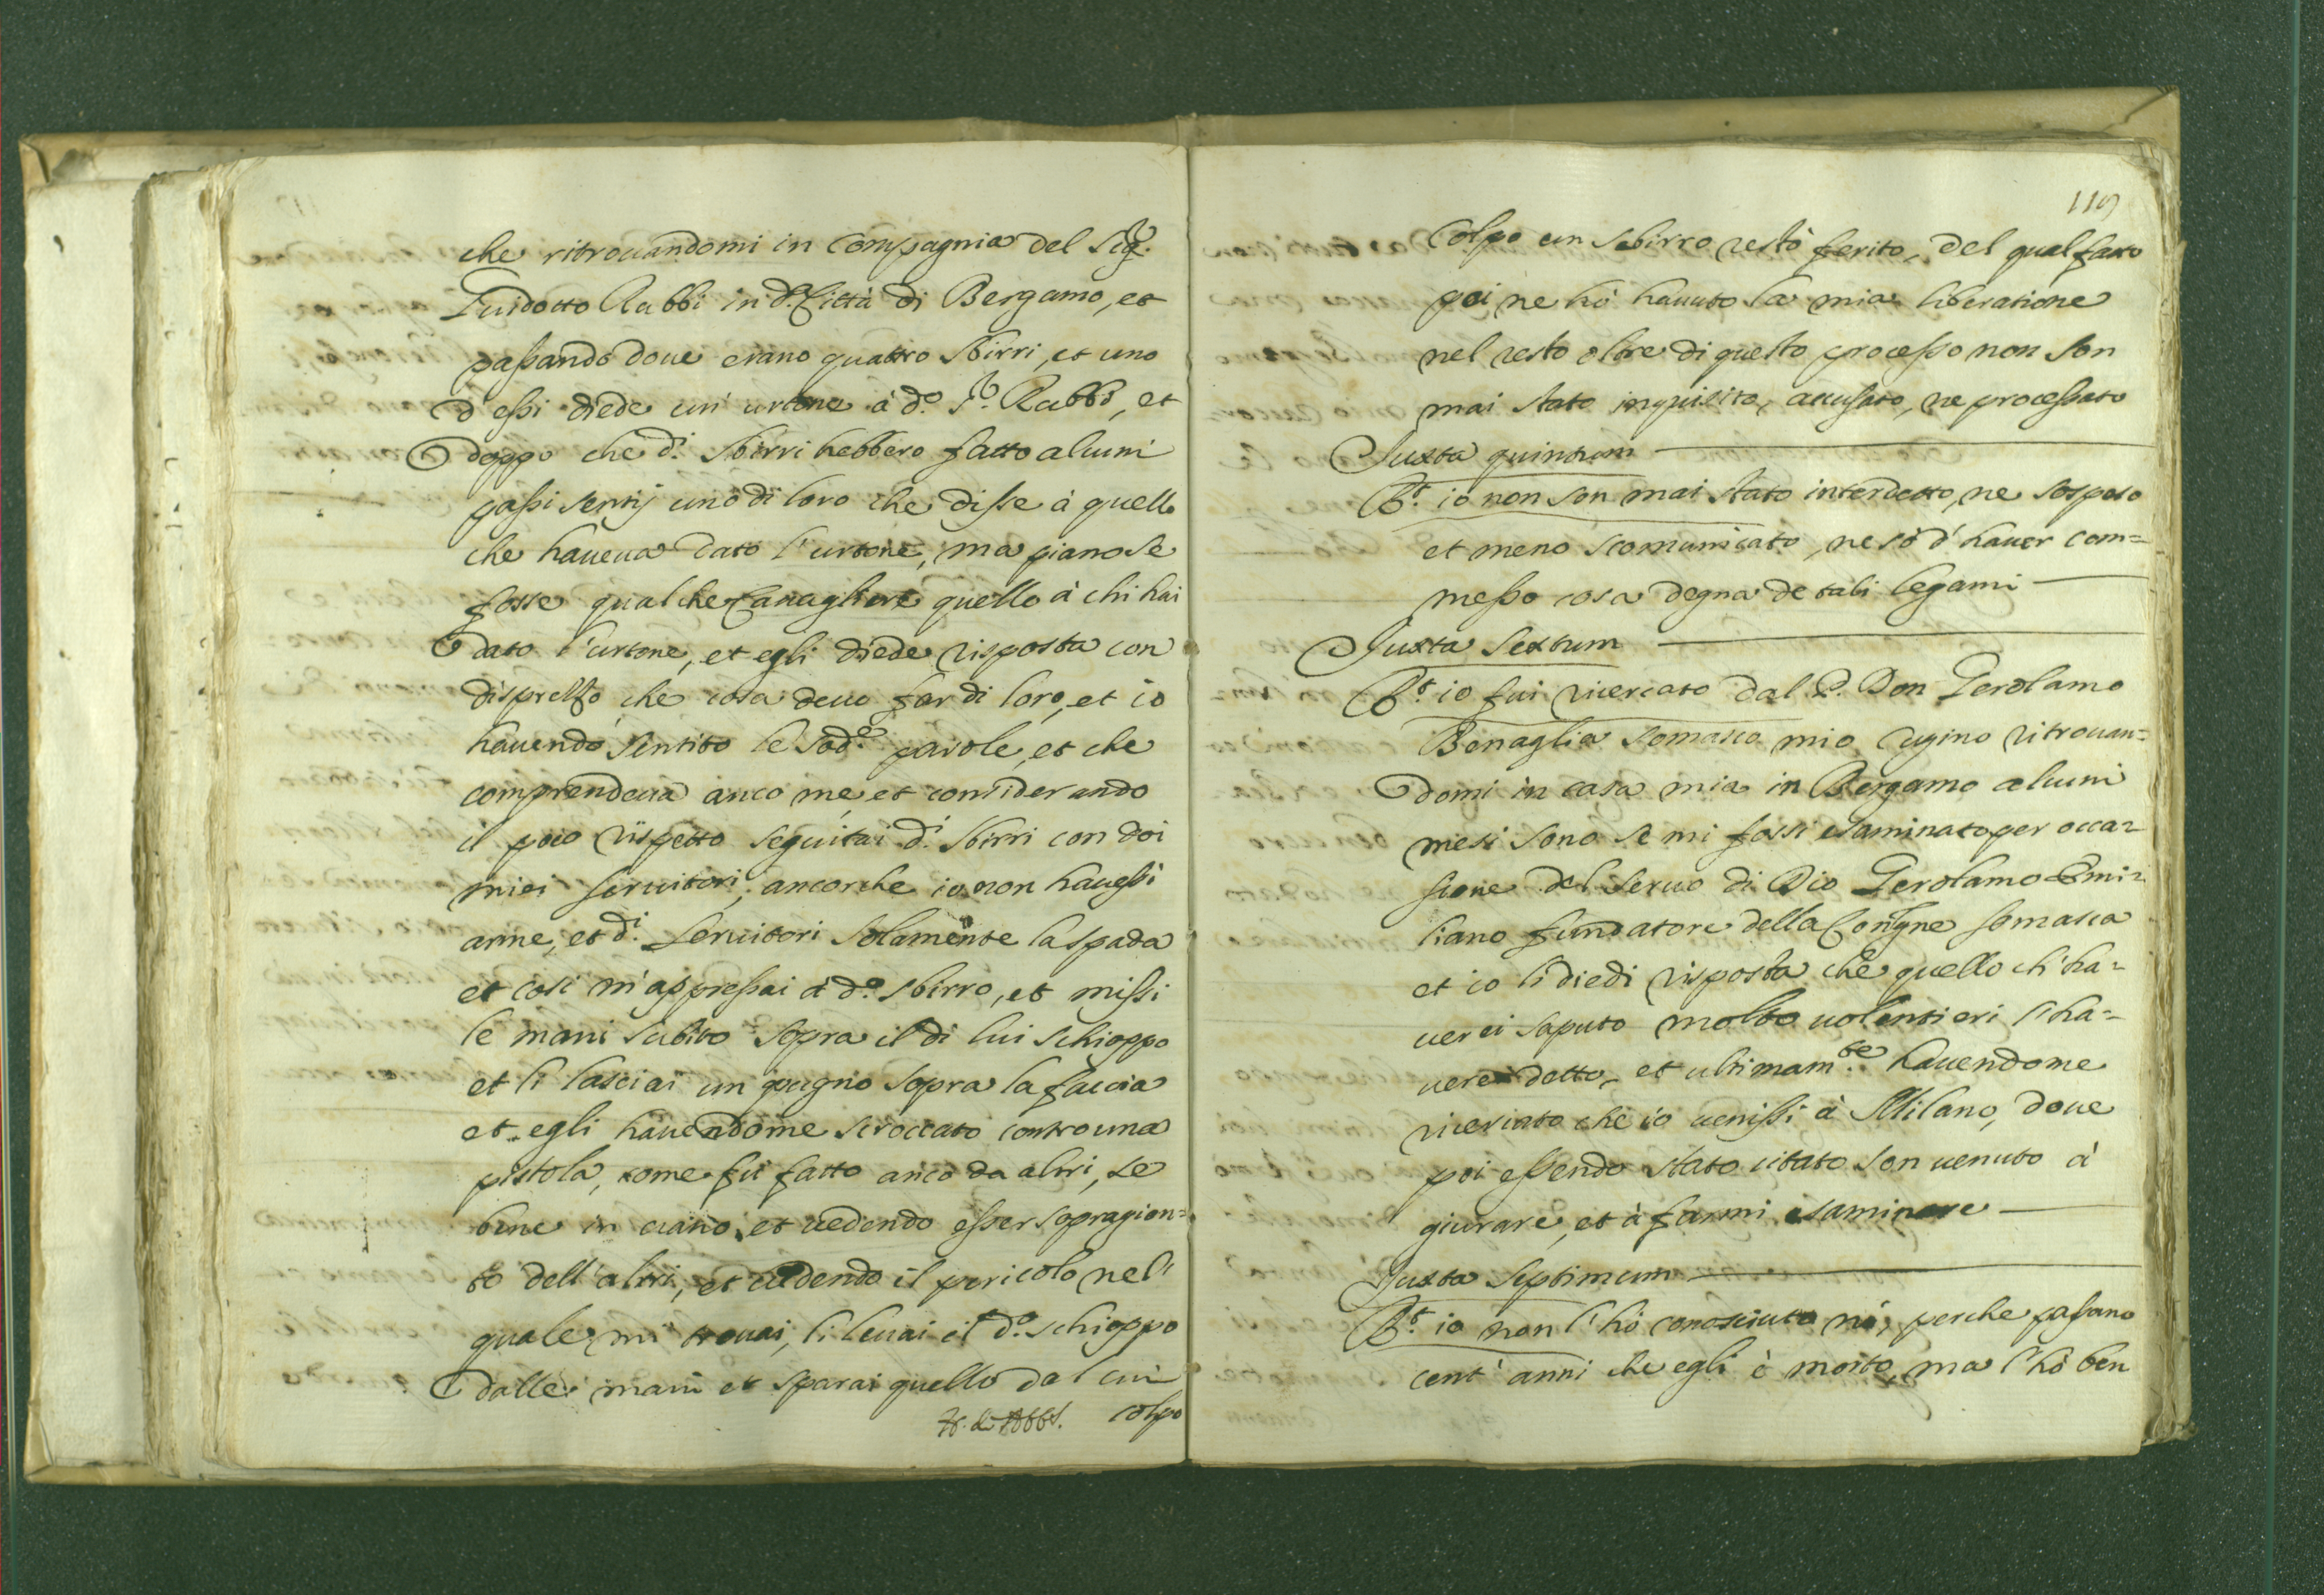 che ritrouandomi in Compagnia del Sig.r
Guidotto Rabbi in d.a Città di Bergamo, et
passando doue erano quattro sbirri, et uno
d'essi diede un' urtone à d.o S.r Rabbi, et
doppo che d.i sbirri hebbero fatto alcuni
passi sentij uno di loro che disse à quello
che haueua dato l'urtone, ma piano se
fosse qualche Cauagliere quello à chi hai
dato l'urtone, et egli diede risposta con
disprezzo che cosa deuo far di loro, et io
hauendo sentito le sod.e parole, et che
comprendeua anco me, et considerando
il poco rispetto seguitai d.i sbirri con doi
miei seruitori, ancorche io non hauessi
arme, et d.i seruitori solamente la spada
et così m'appressai à d.o sbirro, et missi
le mani subito sopra il di lui schioppo
et li lasciai un pugno sopra la faccia
et egli hauendome scroccato contro una
pistola, come fù fatto anco da altri, se
bene in uano, et uedendo esser sopragion=
to dell'altri, et uedendo il pericolo nel
quale mi trouai, li leuai il d.o schioppo
dalle mani et sparai quello dal cui
colpo
119
Colpo un sbirro restò ferito, del qual fatto
poi ne hò hauuto la mia liberatione
nel resto oltre di questo processo non son
mai stato inquisito, accusato, ne processato
Juxta quintum
R.t io non son mai stato interdetto, ne sospeso
et meno scomunicato, ne sò d'hauer com=
messo cosa degna de tali legami
Juxta sextum
R.t io fui ricercato dal P. Don Gerolamo
Benaglia somasco mio cugino ritrouan=
domi in casa mia in Bergamo alcuni
mesi sono se mi fossi esaminato per occa=
sione del seruo di Dio Gerolamo Emi=
liano fundatore della Congne somasca
et io li diedi risposta che quello ch'ha=
uerei saputo molto uolentieri l'ha=
uerei detto, et ultimam.te hauendome
ricercato che io uenissi à Milano, doue
poi essendo stato citato son uenuto à
giurare, et à farmi esaminare
Juxta septimum
R.t io non l'hò conosciuto nò, perche passano
cent' anni che egli è morto, ma l'hò ben